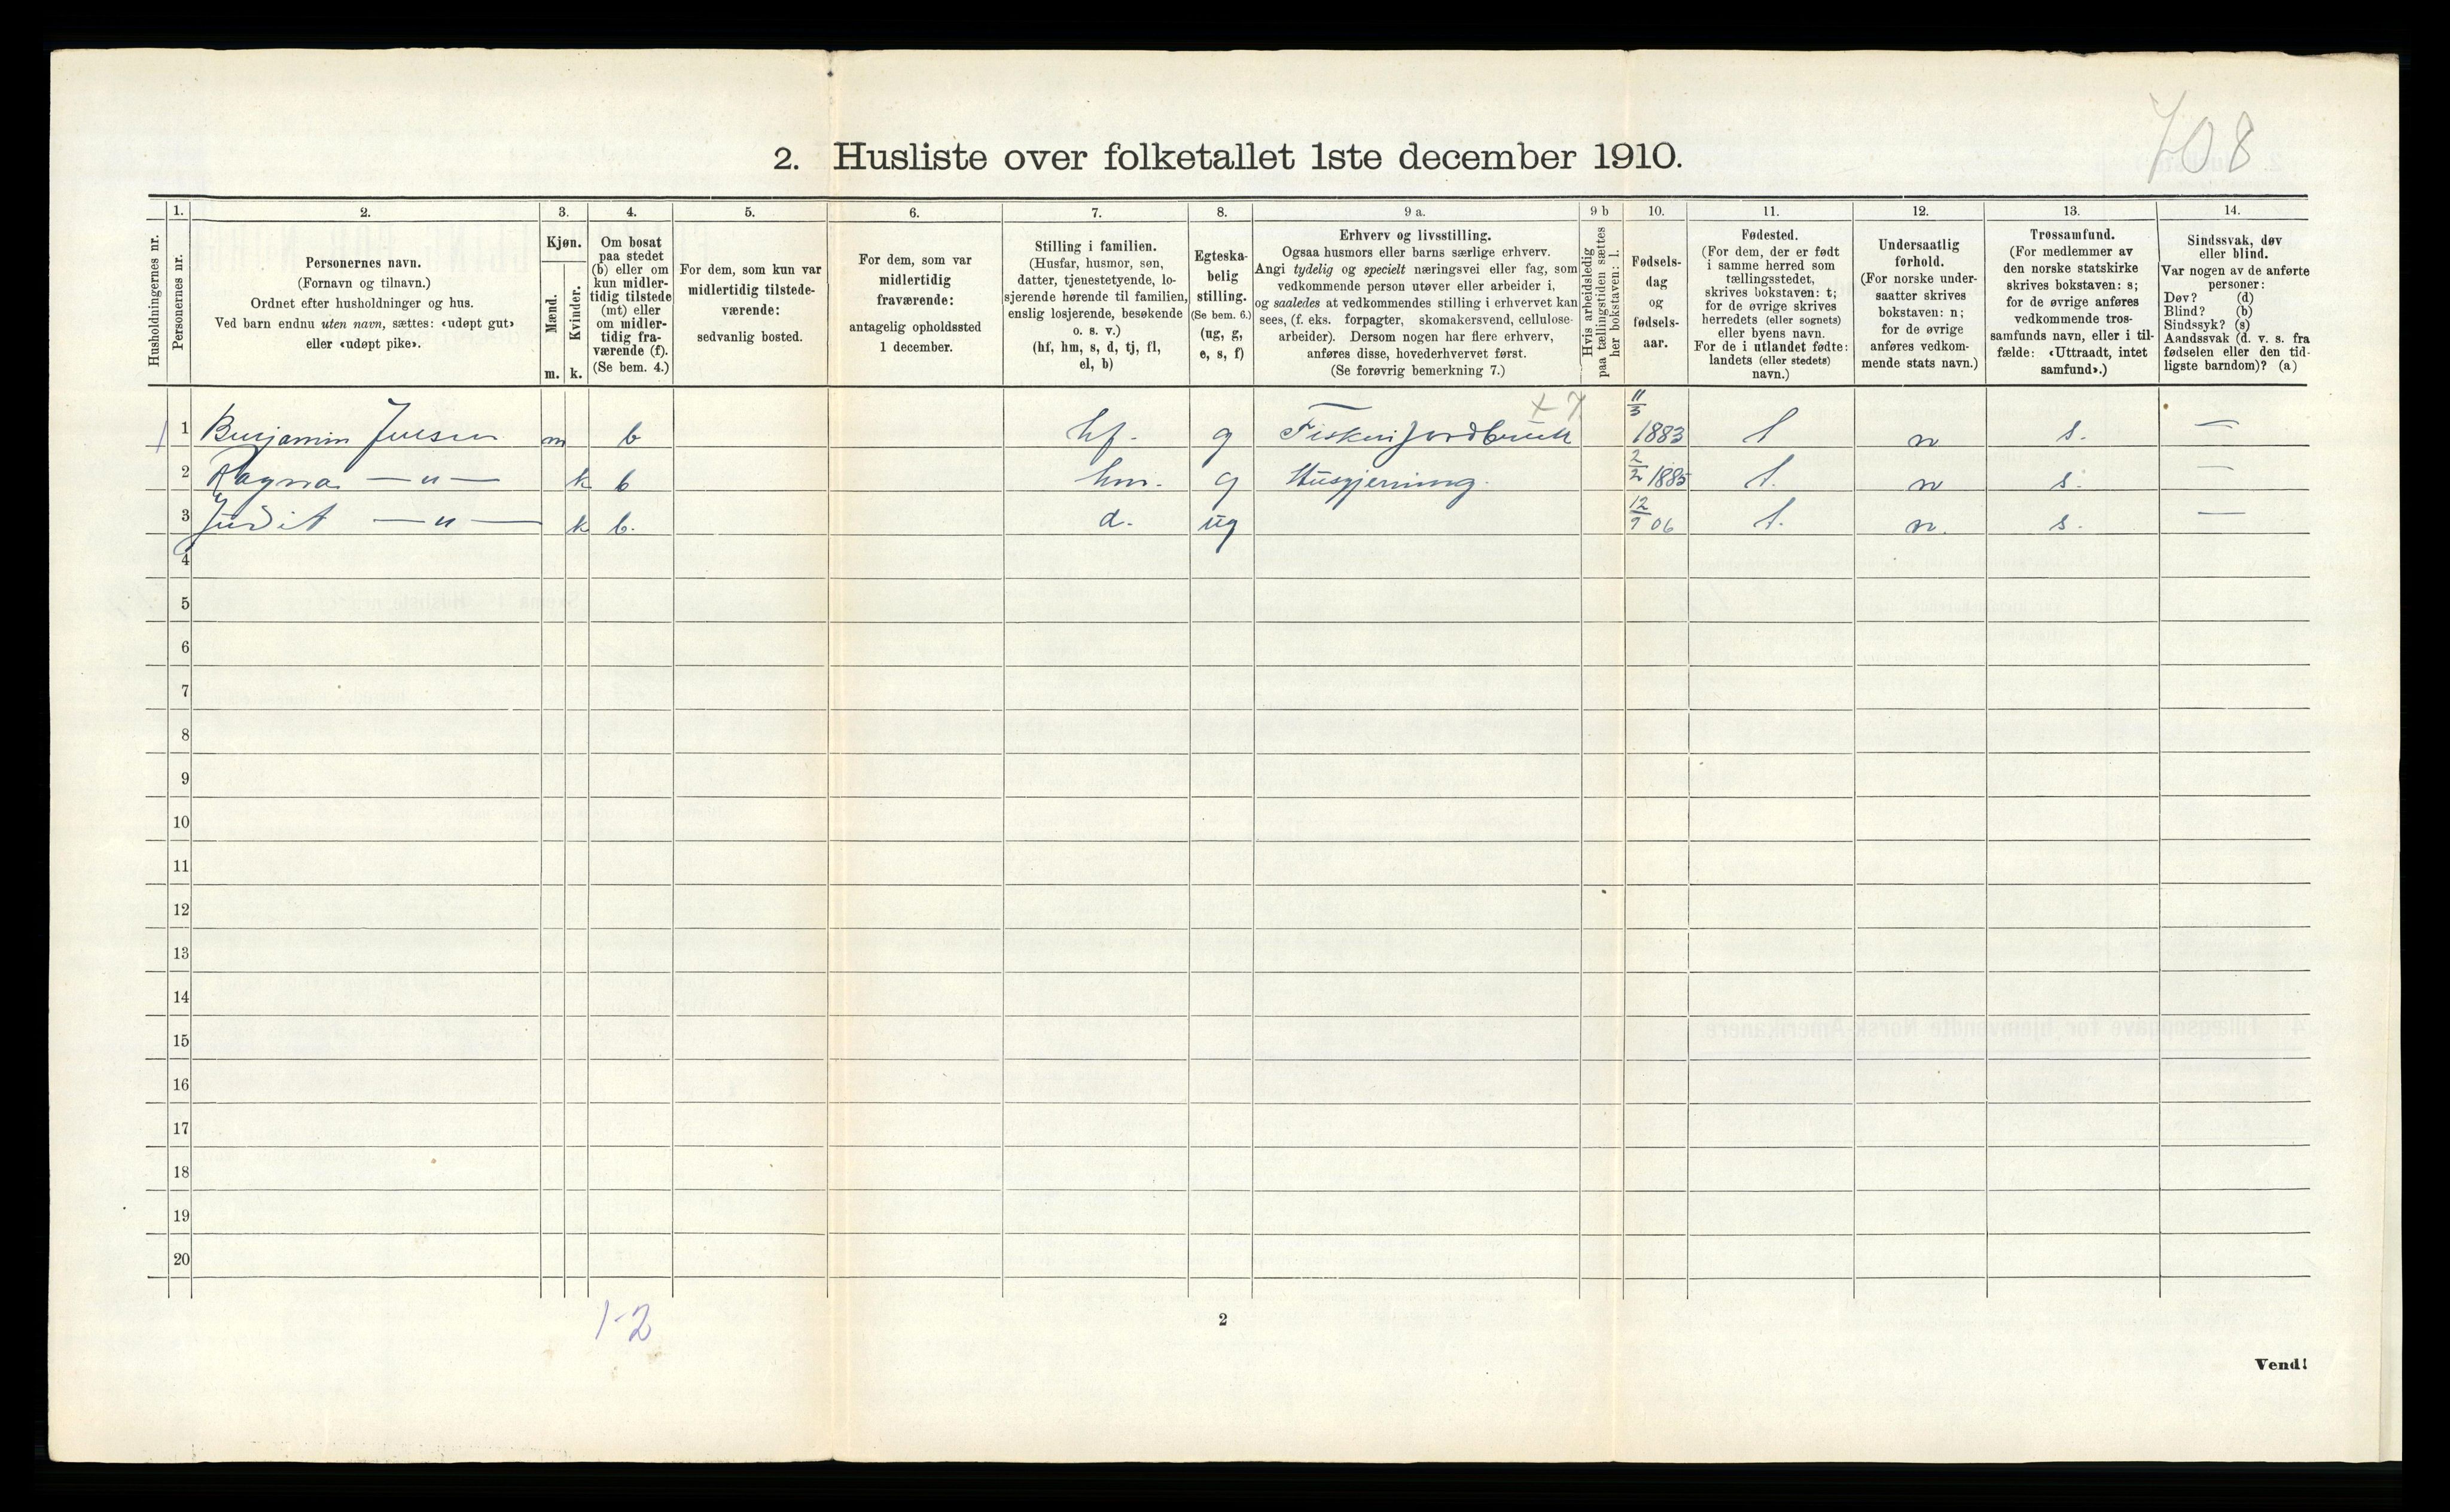 708
2. Husliste over folketallet 1ste december 1910.
1. 2. 3. 4. 5. 6. 7. 8. 9 a. 9 b 10. 11. 12. 13. 14.
Husholdningernes nr.
Personernes nr.
Personernes navn.
(Fornavn og tilnavn.)
Ordnet efter husholdninger og hus.
Ved barn endnu uten navn, sættes: «udøpt gut»
eller «udøpt pike».
Kjøn.
Mænd.
Kvinder.
m. k.
Om bosat
paa stedet
(b) eller om
kun midler-
tidig tilstede
(mt) eller
om midler-
tidig fra-
værende (f).
(Se bem. 4.)
For dem, som kun var
midlertidig tilstede-
værende:
sedvanlig bosted.
For dem, som var
midlertidig
fraværende:
antagelig opholdssted
1 december.
Stilling i familien.
(Husfar, husmor, søn,
datter, tjenestetyende, lo-
sjerende hørende til familien,
enslig losjerende, besøkende
o. s. v.)
(hf, hm, s, d, tj, fl,
el, b)
Egteska-
belig
stilling.
(Se bem. 6.)
(ug, g,
e, s, f)
Erhverv og livsstilling.
Ogsaa husmors eller barns særlige erhverv.
Angi tydelig og specielt næringsvei eller fag, som
vedkommende person utøver eller arbeider i,
og saaledes at vedkommendes stilling i erhvervet kan
sees, (f. eks. forpagter, skomakersvend, cellulose-
arbeider). Dersom nogen har flere erhverv,
anføres disse, hovederhvervet først.
(Se forøvrig bemerkning 7.)
Hvis arbeidsledig
paa tællingstiden sættes
her bokstaven: l.
Fødsels-
dag
og
fødsels-
aar.
Fødested.
(For dem, der er født
i samme herred som
tællingsstedet,
skrives bokstaven: t;
for de øvrige skrives
herredets (eller sognets)
eller byens navn.
For de i utlandet fødte:
landets (eller stedets)
navn.)
Undersaatlig
forhold.
(For norske under-
saatter skrives
bokstaven: n;
for de øvrige
anføres vedkom-
mende stats navn.)
Trossamfund.
(For medlemmer av
den norske statskirke
skrives bokstaven: s;
for de øvrige anføres
vedkommende tros-
samfunds navn, eller i til-
fælde: «Uttraadt, intet
samfund».)
Sindssvak, døv
eller blind.
Var nogen av de anførte
personer:
Døv? (d)
Blind? (b)
Sindssyk? (s)
Aandssvak (d. v. s. fra
fødselen eller den tid-
ligste barndom)? (a)
1 Benjamin Jensen m b hf. g Fiskeri jordbruk 11/3 1883 t n s. —
2 Ragna —„— k b hm. g Husgjerning. 2/2 1885 t. n s. —
3 Judit —„— k b. d. ug 12/9 06 t. n. s. —
4
5
6
7
8
9
10
11
12
13
14
15
16
17
18
19
20
1-2
2
Vend!